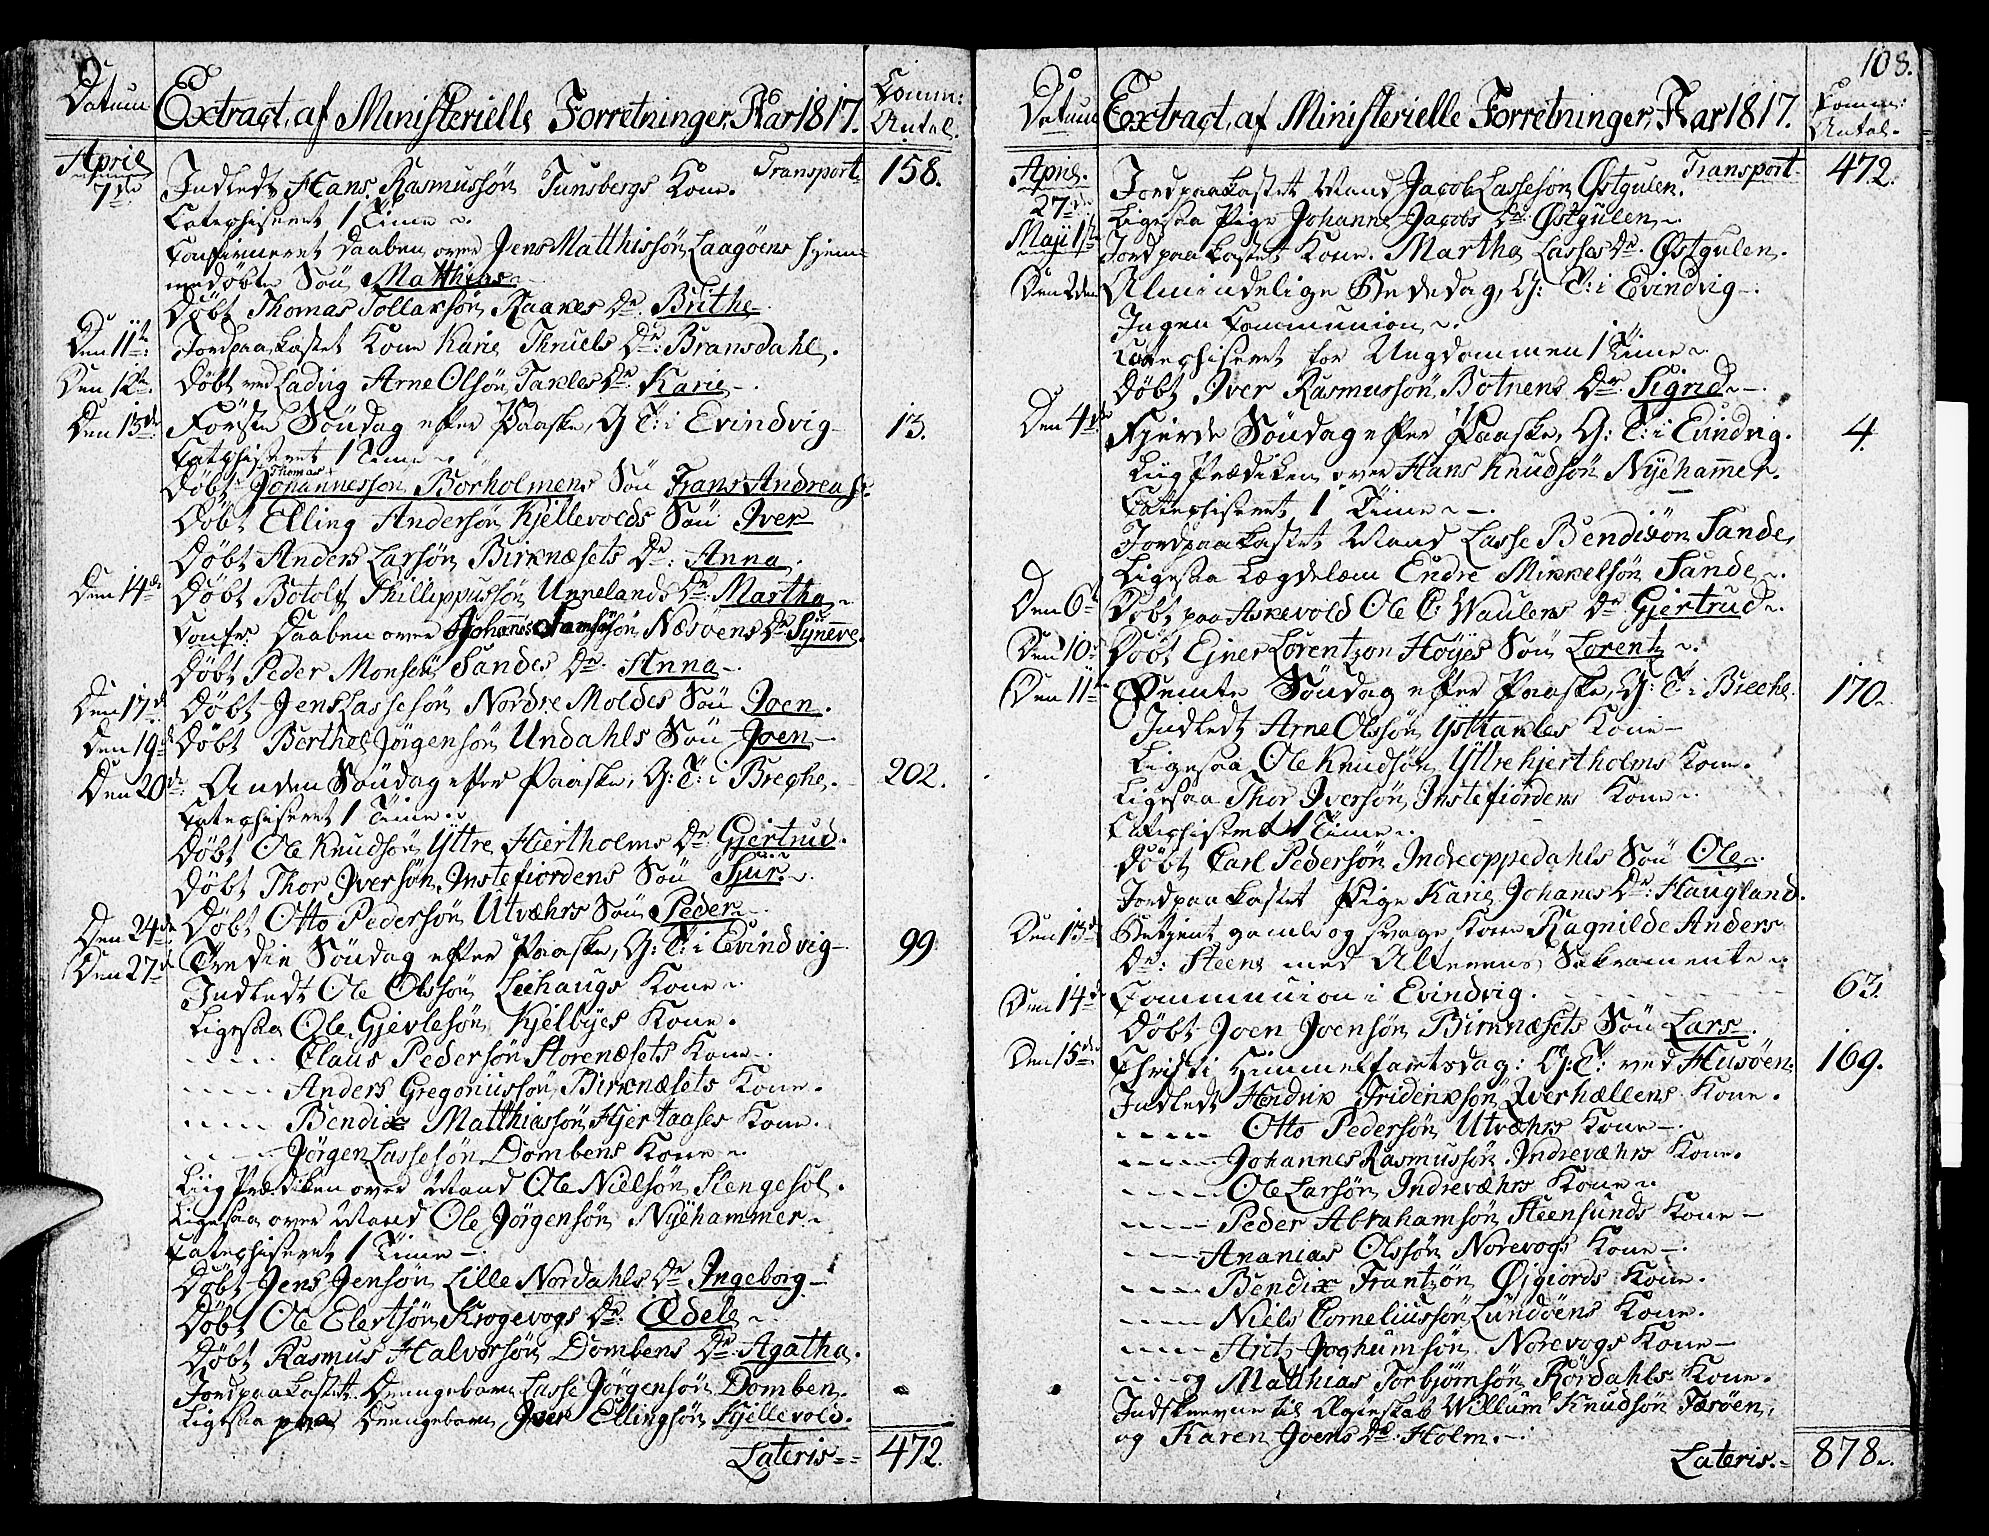 Datum
Extract, af Ministerielle Forretninger, Aar 1817.
Comm:
Antal.
April
7de
Transport
158.
Indledt Hans Rasmussøn Tunsbergs Kone.
Catechiseret 1 Time
Confirmeret Daaben over Jens Matthissøn Laagøens hjem-
medøbte Søn Matthias
Døbt Thomas Tollaksøn Raakes Dr. Brithe
Den 11te
Jordpaakastet Kone Karie Thruels Dr: Bransdahl.
Den 12te
Døbt ved Ladvig Arne Olsøn Takles Dr Karie
Den 13de
Første Søndag efter Paaske, G: T: i Evindvig
13.
Catechiseret 1 Time
Døbt Thomas Johannessøn Borholmens Søn Frans Andreas.
Døbt Elling Andersøn Kjellevolds Søn Iver
Døbt Anders Larsøn Birknæsets Dr: Anna
Den 14de
Døbt Botolf Phillippussøn Unnelands Dr Martha
Confr. Daaben over Johannes Samsøn Næsvens Dr Synneve.
Døbt Peder Monsøn Sandes Dr. Anna
Den 17de
Døbt Jens Lassesøn Nordre Moldes Søn Joen.
Den 19de
Døbt Berthol Jørgensøn Undahls Søn Joen
Den 20de
Anden Søndag efter Paaske, G: T: i Breche.
202.
Catechiseret 1 Time
Døbt Ole Knudsøn Yttre Hiertholms Dr Gjertrud.
Døbt Thor Iversøn Instefiordens Søn Sjur
Den 24de
Døbt Otto Pedersøn Utvæhrs Søn Peder
Den 27de
Tredie Søndag efter Paaske, G: T: i Evindvig
99
Indledt Ole Olssøn Leehaugs Kone
Ligesaa Ole Gjerlesøn Kjelbyes Kone.
Claus Pedersøn Storenæsets Kone
Anders Gregoriussøn Birknæsets Kone.
Bendix Matthiassøn Hjertaases Kone.
Jørgen Lassesøn Dombens Kone
Liig Prædiken over Mand Ole Nielsøn Stengesol.
Ligesaa over Mand Ole Jørgensøn Nyehammer
Catechiseret 1 Time
Døbt Jens Jensøn Lille Nordahls Dr Ingeborg
Døbt Ole Elertsøn Krogevogs Dr: Ædel
Døbt Rasmus Halversøn Dombens Dr Agatha.
Jordpaakastet Drengebarn Lasse Jørgensøn Domben.
Ligesaa paa Drengebarn Iver Ellingsøn Kjellevold.
Lateris
472.
108.
Datum
Extract, af Ministerielle Forretninger, Aar 1817.
Comm:
Antal.
April.
27de
Transport
472.
Jordpaakastet Mand Jacob Lassesøn Østgulen.
Ligesaa Pige Johanne Jacobs Dr: Østgulen
Maji 1ste
Jordpaakastet Kone Martha Lasses Dr. Østgulen.
Den 2den
Almindelige Bededag, G: T: i Evindvig
Ingen Communion
Catechiseret for Ungdommen 1 Time
Døbt Iver Rasmussøn Botnens Dr. Sigrid
Den 4de
Fjerde Søndag efter Paaske, G: T: i Evindvig.
4.
Liig Prædiken over Hans Knudsøn Nyehammer.
Catechiseret 1 Time
Jordpaakastet Mand Lasse Bendixøn Sande,
Ligesaa Lægdelem Endre Mikkelsøn Sande
Den 6te
Døbt paa Askevold Ole C: Waulens Dr Gjertrud
Den 10de
Døbt Ejner Lorentzøn Høyes Søn Lorentz
Den 11te
Femte Søndag efter Paaske, G: T: i Breche
170.
Indledt Arne Olssøn Ysttakles Kone
Ligesaa Ole Knudsøn Yttrehjertholms Kone.
Ligesaa Thor Iversøn Instefiordens Kone
Catechiseret 1 Time
Døbt Carl Pedersøn Indreoppedahls Søn Ole
Jordpaakastet Pige Karie Johannes Dr: Haugland.
Den 13de
Betjent gamle og svage Kone Ragnilde Anders
Dr: Steens med Alterens Sakramente
Den 14de
Communion i Evindvig.
63.
Døbt Joen Joensøn Birknæsets Søn Lars
Den 15de
Christi Himmelfartsdag: G: T: ved Husøen.
169.
Indledt Hendrik Friderikssøn Qverhællens Kone.
Otto Pedersøn Utvæhrs Kone
Johannes Rasmussøn Indrevæhrs Kone.
Ole Larsøn Indrevæhrs Kone
Peder Abrahamsøn Steensunds Kone
Ananias Olssøn Norevogs Kone
Bendix Frantzøn Øjgiords Kone.
Niels Corneliussøn Lundøens Kone.
Aritz Joghumsøn Norevogs Kone
og Matthias Torbjørnsøn Rørdahls Kone.
Indskrevne til Ægteskab Willum Knudsøn Færøen,
og Karen Joens Dr. Holm.
Lateris.
878.